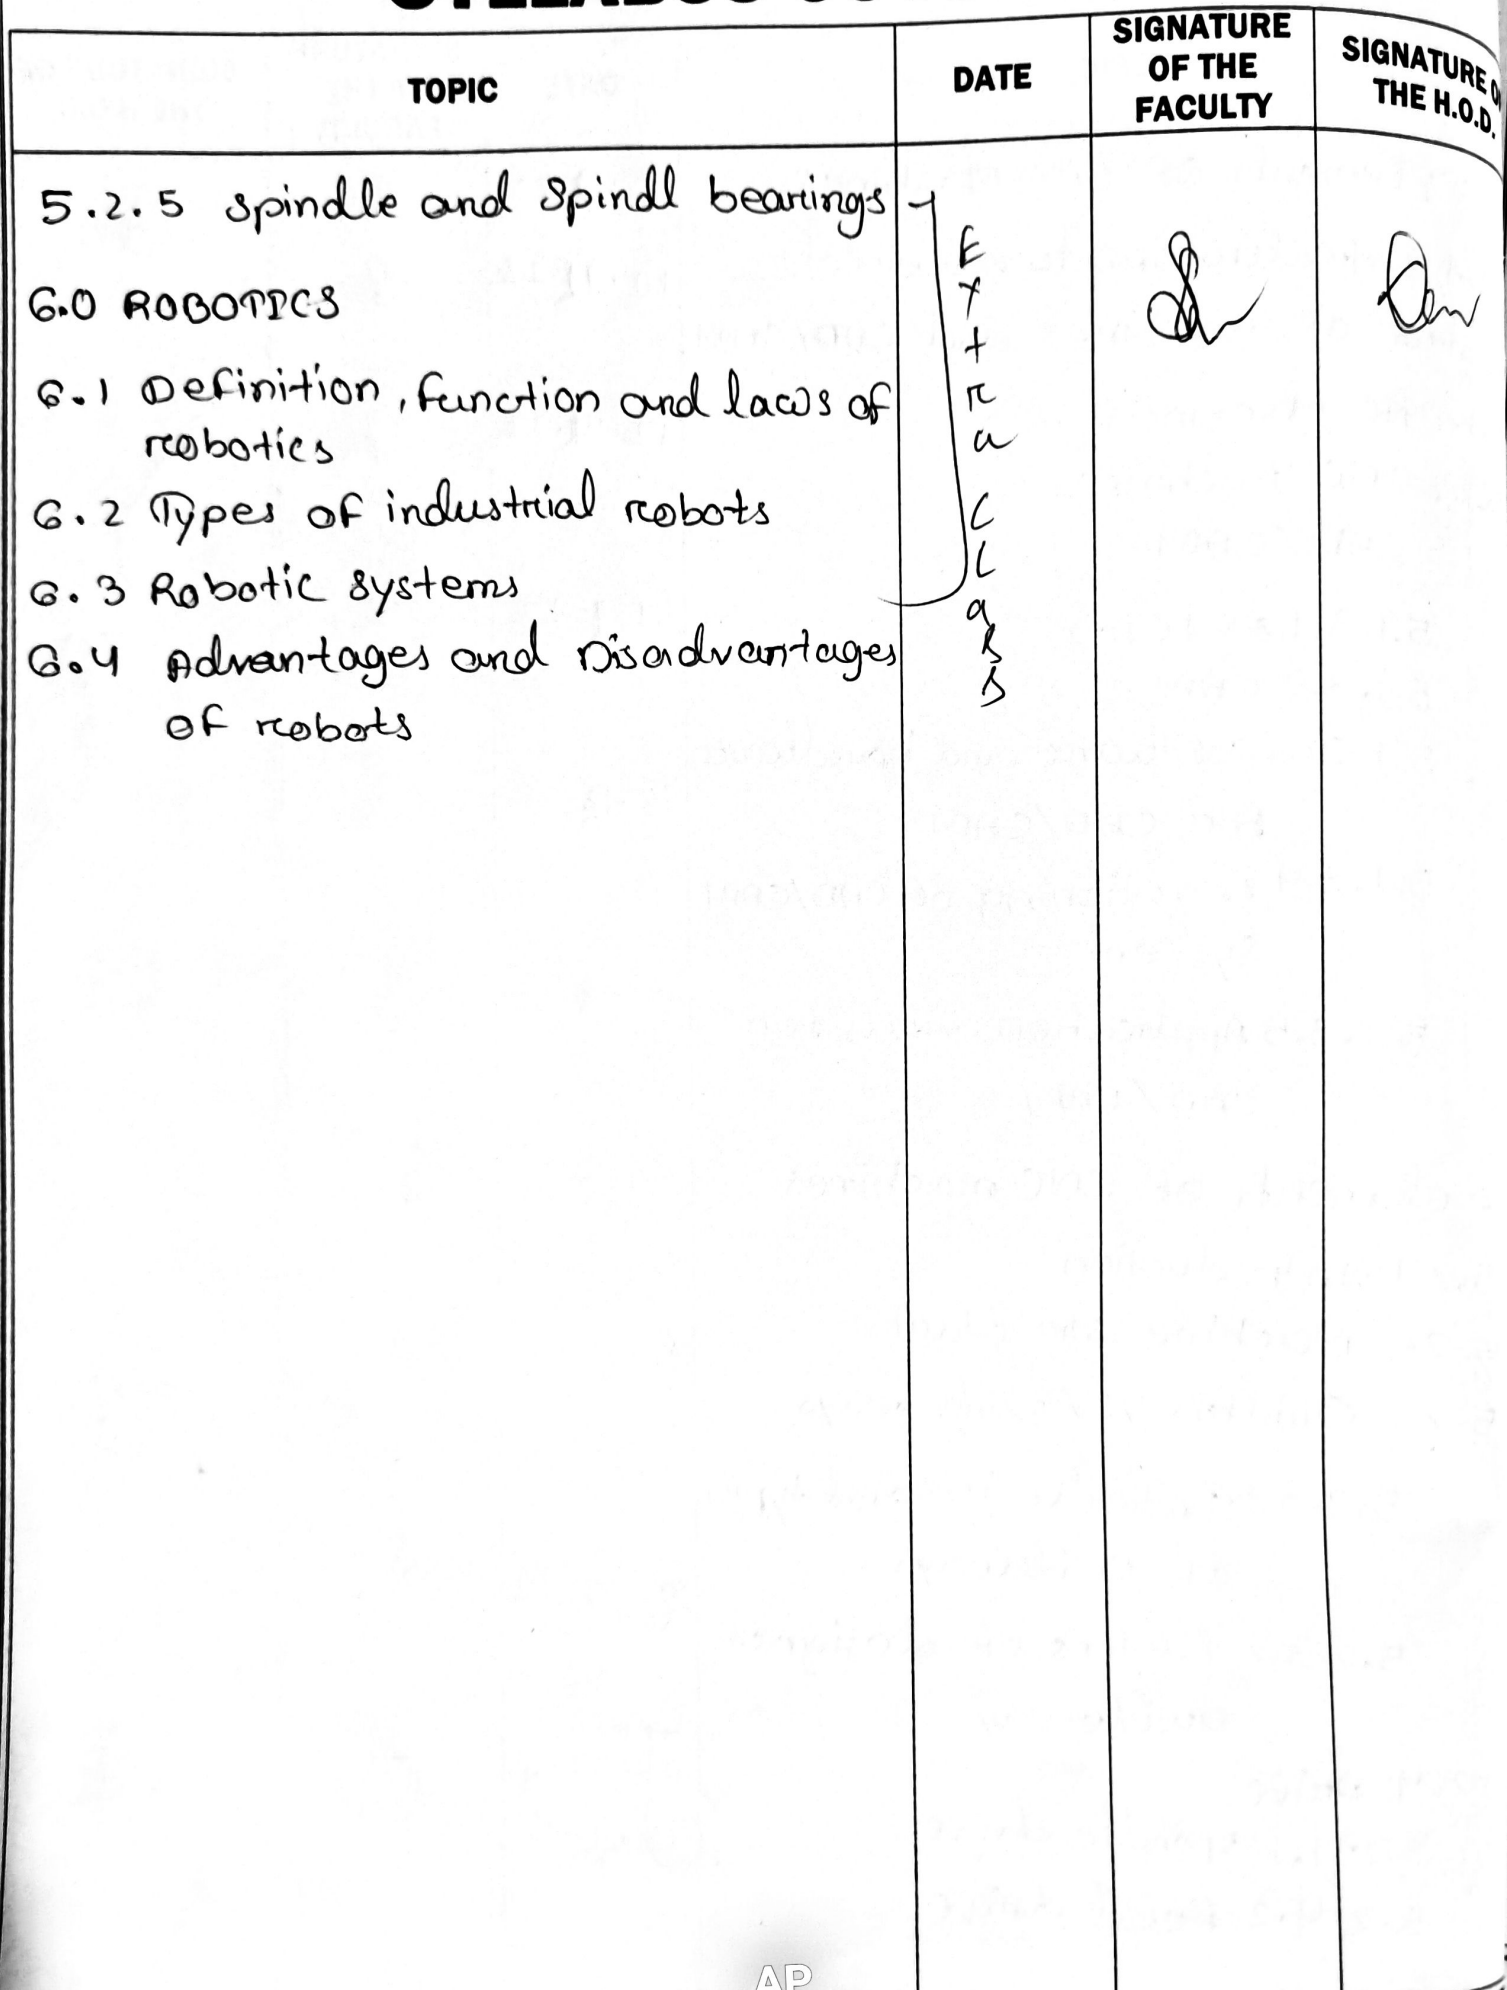 TOPIC
DATE
SIGNATURE
OF THE
FACULTY
SIGNATURE
THE H.O.D.
5.2.5 Spindle and Spindl bearings
6.0 ROBOTICS
6.1 Definition, function and laws of
robotics
6.2 Types of industrial robots
6.3 Robotic systems
6.4 Advantages and Disadvantages
of robots
Extra
Class
AP